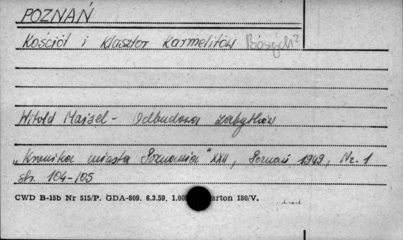 POZNAŃ
Kościół i klasztor Karmelitów Bosych?
Witold Maisel - Odbudowa zabytków
„Kronika miasta Poznania" XXII, Poznań 1949, Nr. 1
str. 104-105
CWD B-15b Nr 515/P. GDA-609. 6.3.59, 1.00 arton 180/V.